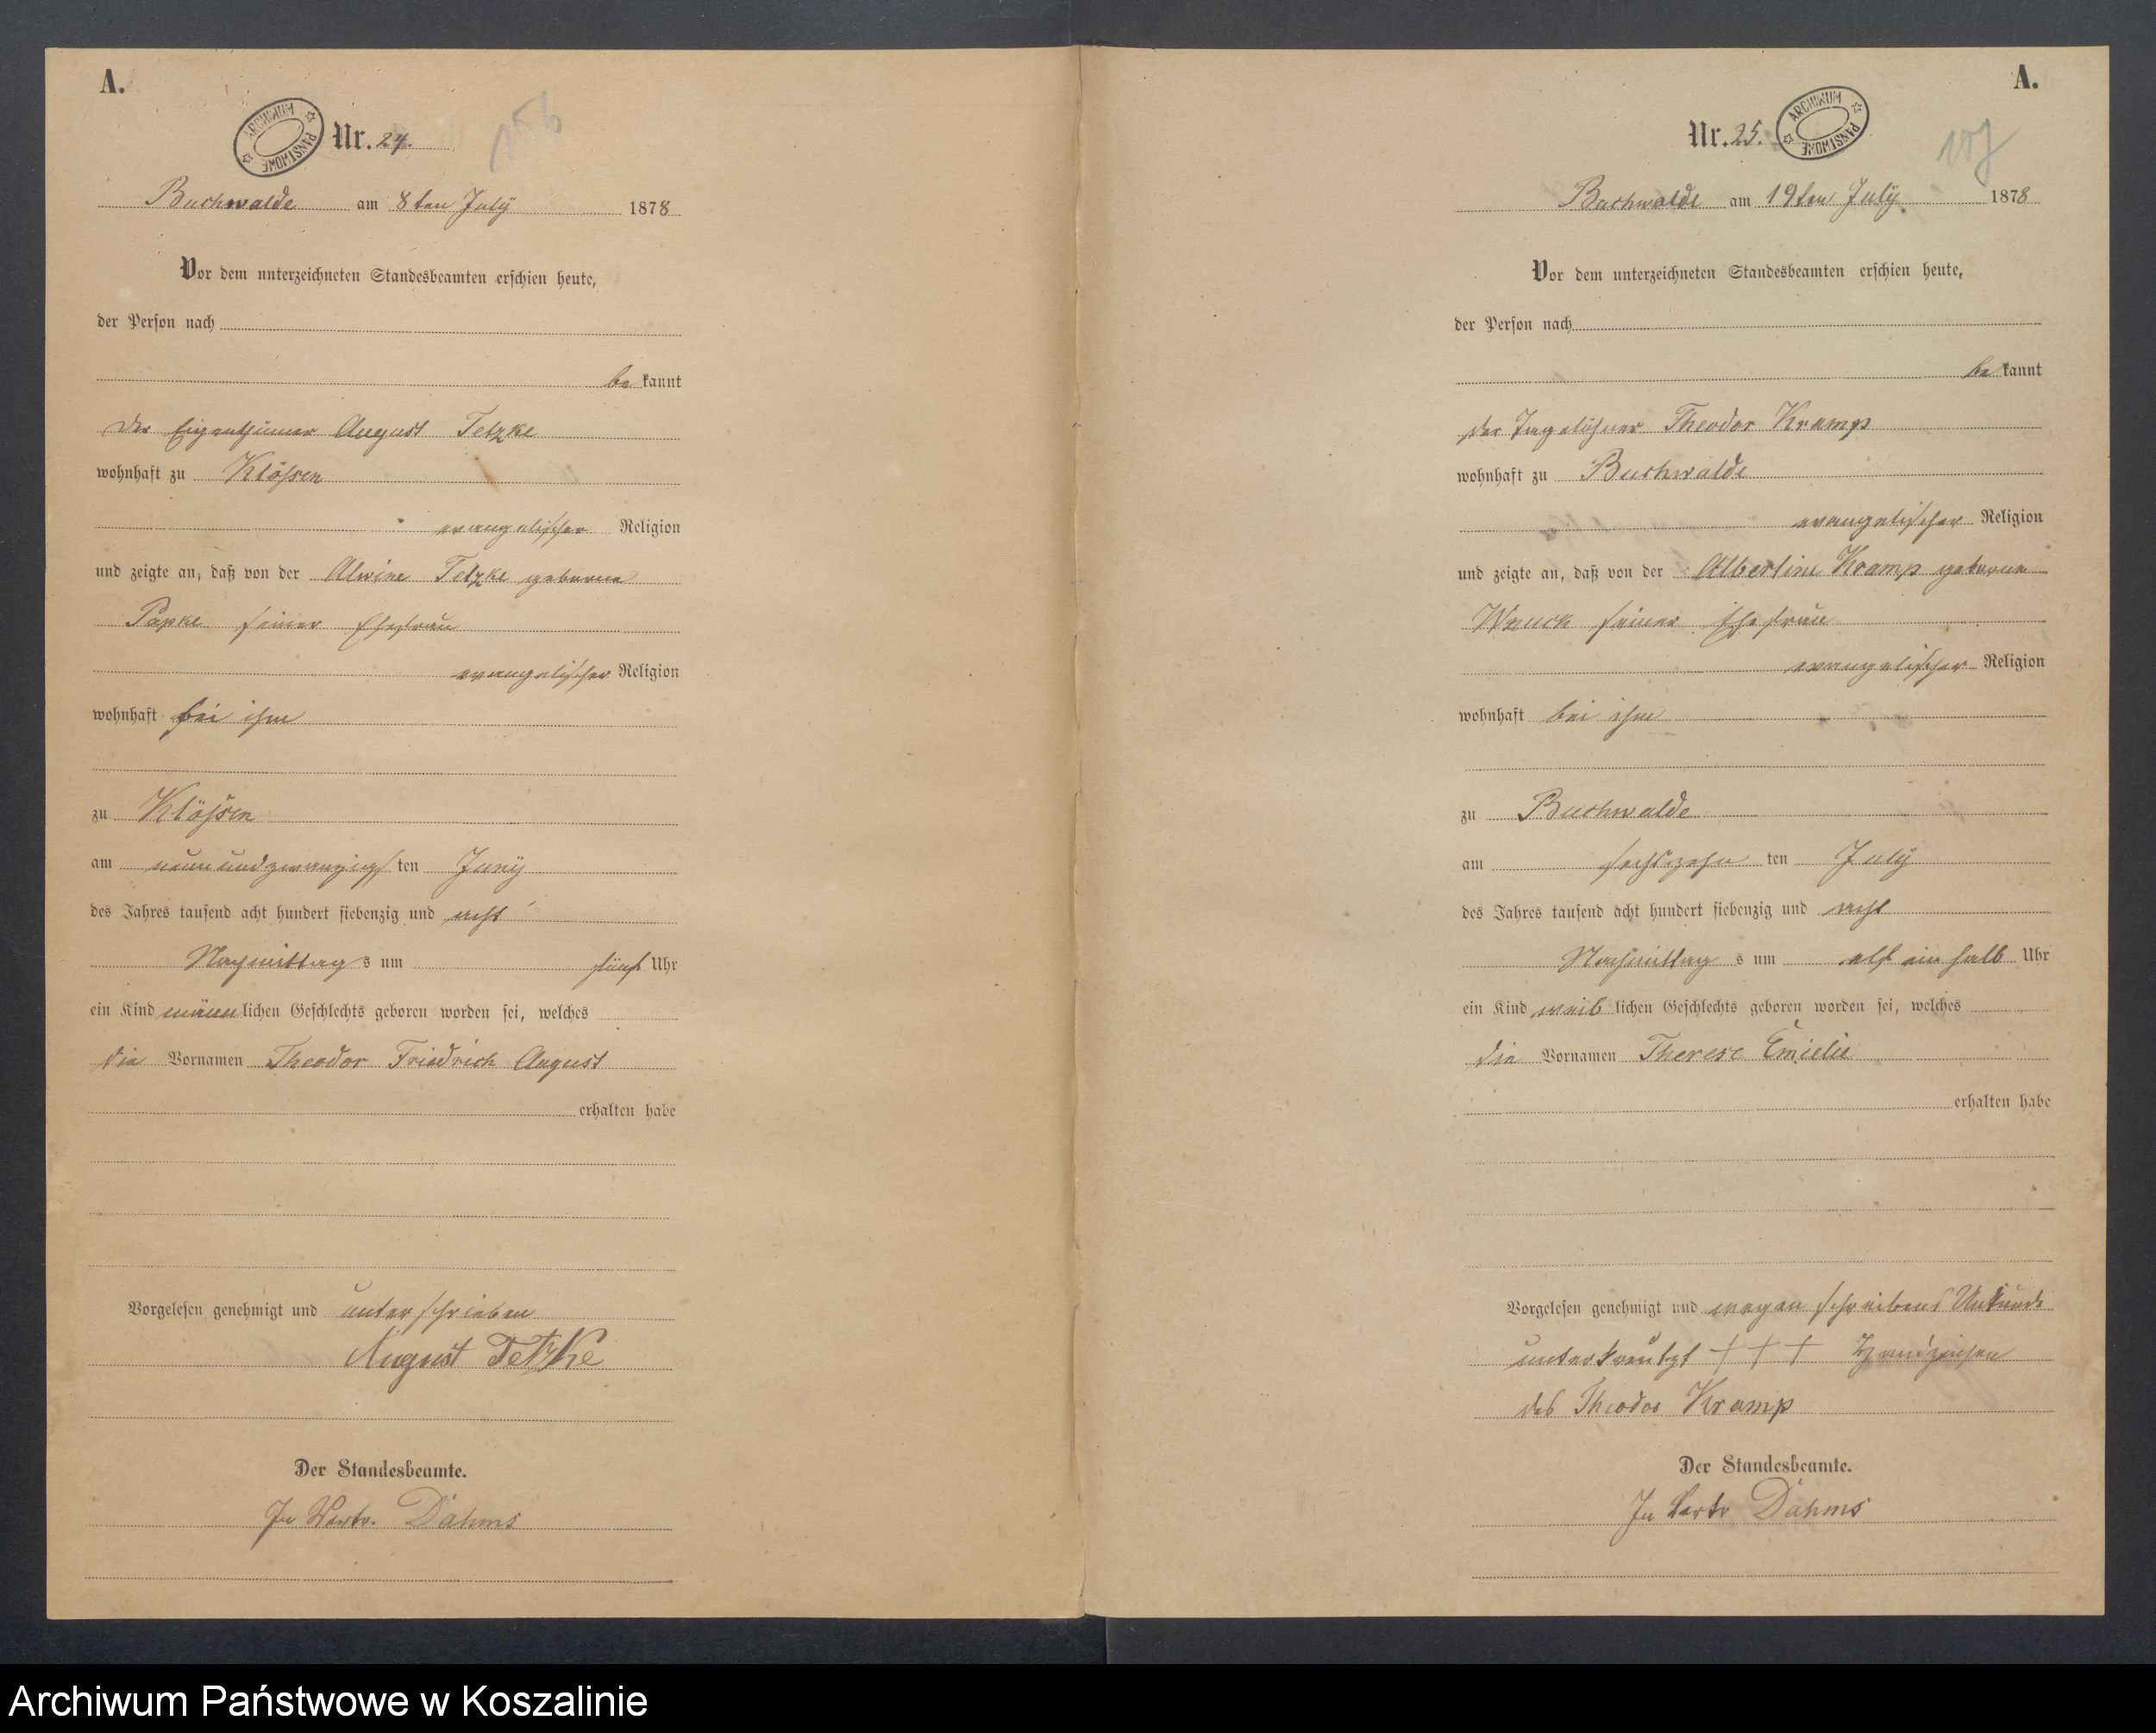 A.
ARCHIWUM PAŃSTWOWE
Nr. 24.
156
Buchwalde am 8ten July 1878
Vor dem unterzeichneten Standesbeamten erschien heute,
der Person nach
bekannt
Der Eigenthümer August Tetzke
wohnhaft zu Klössen
evangelischer Religion
und zeigte an, daß von der Alwine Tetzke geborene
Papke seiner Ehefrau
evangelischer Religion
wohnhaft bei ihm
zu Klössen
am neunundzwanzigsten Juny
des Jahres tausend acht hundert siebenzig und acht
Nachmittags um fünf Uhr
ein Kind männlichen Geschlechts geboren worden sei, welches
die Vornamen Theodor Friedrich August
erhalten habe
Vorgelesen genehmigt und unterschrieben
August Tetzke
Der Standesbeamte.
In Vertr. Dahms
A.
Nr. 25.
ARCHIWUM PAŃSTWOWE
157
Buchwalde am 19ten July 1878
Vor dem unterzeichneten Standesbeamten erschien heute,
der Person nach
bekannt
der Tagelöhner Theodor Kramp
wohnhaft zu Buchwalde
evangelischer Religion
und zeigte an, daß von der Albertine Kramp geborene
Wnuck seiner Ehefrau
evangelischer Religion
wohnhaft bei ihm
zu Buchwalde
am sechszehn ten July
des Jahres tausend acht hundert siebenzig und acht
Nachmittag s um elf ein halb Uhr
ein Kind weiblichen Geschlechts geboren worden sei, welches
die Vornamen Therese Emielie
erhalten habe
Vorgelesen genehmigt und wegen schreibens Unkunde
unterkreutzt + + + Handzeichen
des Theodor Kramp
Der Standesbeamte.
In Vertr Dahms
Archiwum Państwowe w Koszalinie